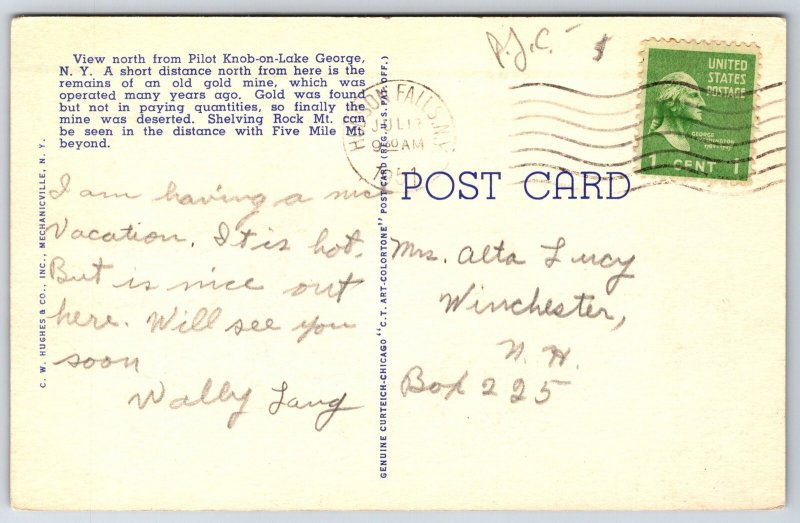 View north from Pilot Knob-on-Lake George,
N. Y. A short distance north from here is the
remains of an old gold mine, which was
operated many years ago. Gold was found
but not in paying quantities, so finally the
mine was deserted. Shelving Rock Mt. can
be seen in the distance with Five Mile Mt.
beyond.
C. W. HUGHES & CO., INC., MECHANICVILLE, N. Y.
I am having a nice
Vacation. It is hot.
But is nice out
here. Will see you
soon
Wally Lang
GENUINE CURTEICH-CHICAGO "C. T. ART-COLORTONE" POST CARD (REG. U. S. PAT. OFF.)
P.J.C.
HUDSON FALLS, N.Y.
JUL 17
9 30 AM
1951
UNITED
STATES
POSTAGE
GEORGE
WASHINGTON
1 CENT 1
POST CARD
Mrs. Alta Lucy
Winchester,
N. H.
Box 225